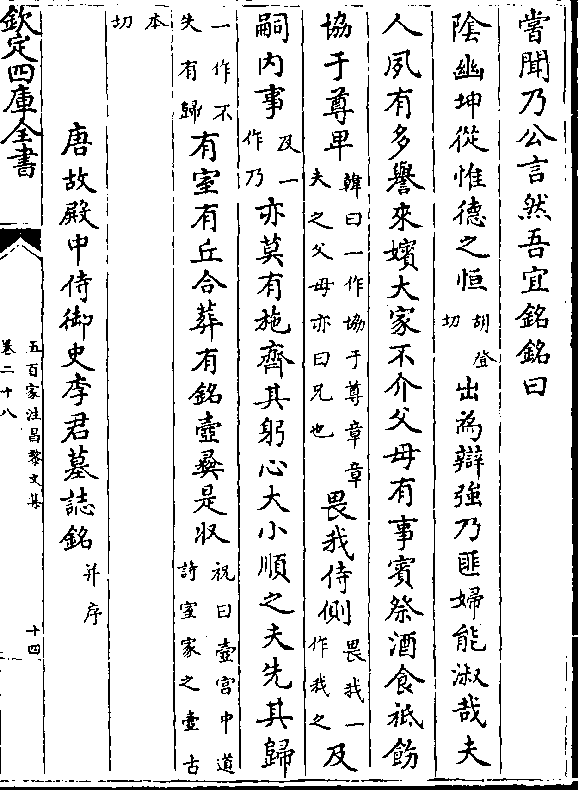 嘗聞乃公言然吾宜銘銘曰
陰幽坤從惟德之恒胡登切出為辯強乃匪婦能淑哉夫
人夙有多譽來嬪大家不介父母有事賓祭酒食祗飭
協于尊卑韓曰一作協于尊章章夫之父母亦曰兄也畏我侍側畏我一作我之及
嗣内事及一作乃亦莫有施齊其躬心大小順之夫先其歸
一作不失有歸有室有丘合葬有銘壼彝是収祝曰壼宫中道許室家之壼古
本切
唐故殿中侍御史李君墓誌銘并序
欽定四庫全書
五百家注昌黎文集
卷二十八
十四